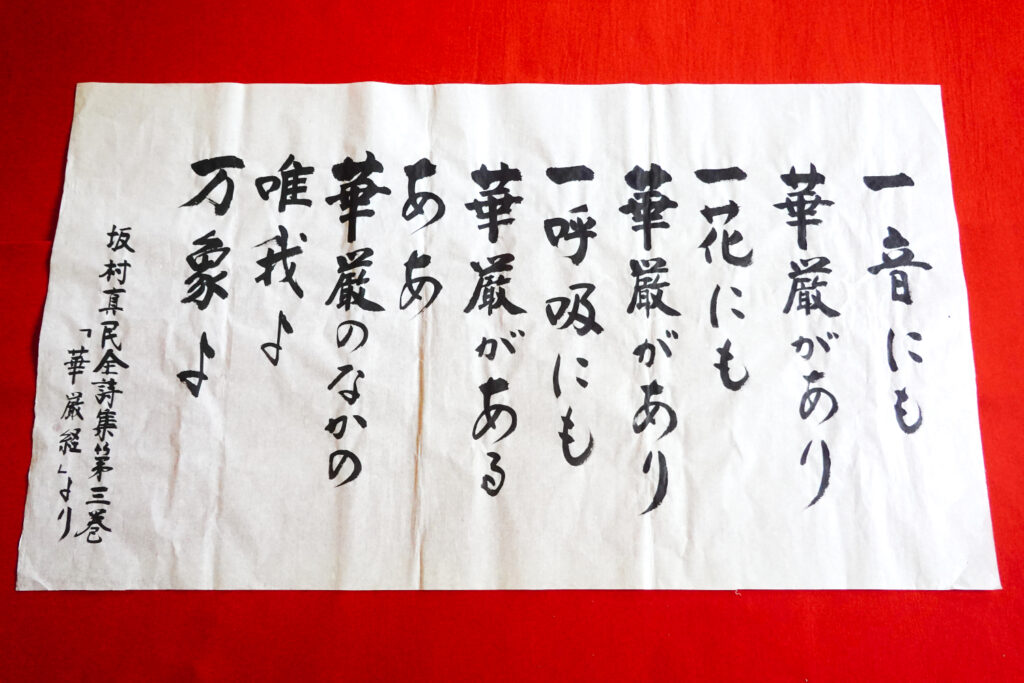 一音にも
華厳があり
一花にも
華厳があり
一呼吸にも
華厳がある
ああ
華厳のなかの
唯我よ
万象よ
坂村真民全詩集第三巻
「華厳経」より